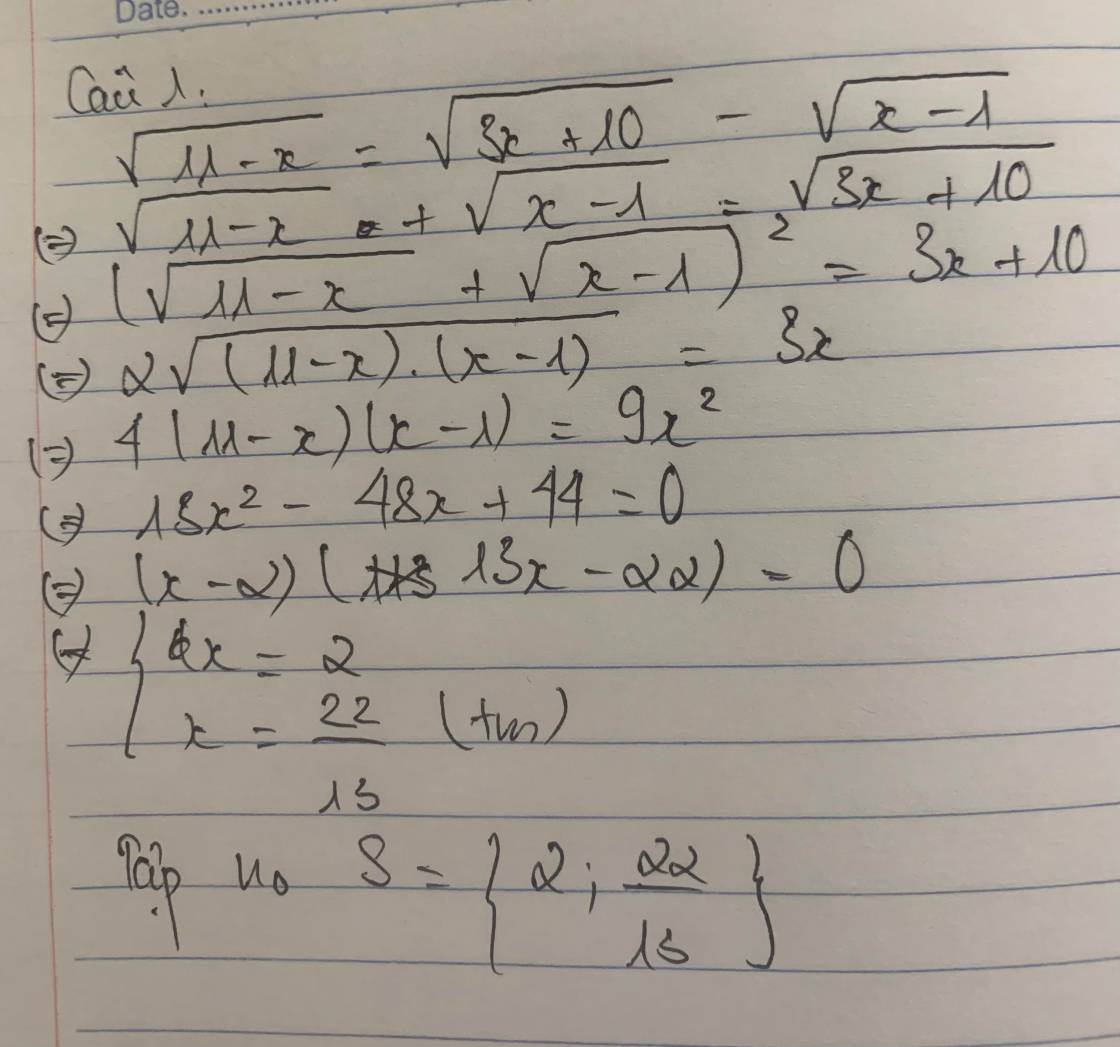 Date. ..............
Câu 1.
√(11 - x) = √(3x + 10) - √(x - 1)
(=) √(11 - x) + √(x - 1) = √(3x + 10)
(=) (√(11 - x) + √(x - 1))² = 3x + 10
(=) 2√((11 - x).(x - 1)) = 3x
(=) 4(11 - x)(x - 1) = 9x²
(=) 13x² - 48x + 44 = 0
(=) (x - 2)(13x - 22) = 0
(=) { x = 2
x = 22/13 (tm)
Tập no S = { 2 ; 22/13 }